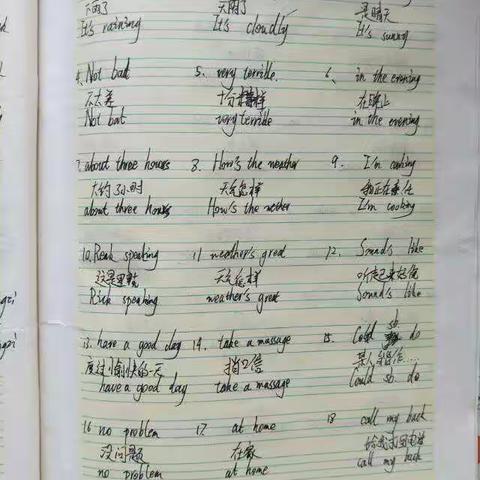 下雨了 天阴了 是晴天
It's raining It's cloudly It's sunny
4. Not bad 5. very terrible. 6. in the evening
不太差 十分糟糕 在晚上
Not bat very terrible in the evening
7. about three hours 8. How's the weather 9. I'm cooking
大约3小时 天气怎样 我正在
about three hours How's the wether I'm cooking
10. speaking 11 weather's great 12. Sounds like
这是 天气 听起来
Rick speaking weather's great Sounds like
13. have a good day 14. take a massage 15. Could sb. do
度过愉快的一天 捎口信 某人
have a good day take a massage Could sb. do
16 no problem 17. at home 18 call my back
没问题 在家 给我回电话
no problem at home call my back